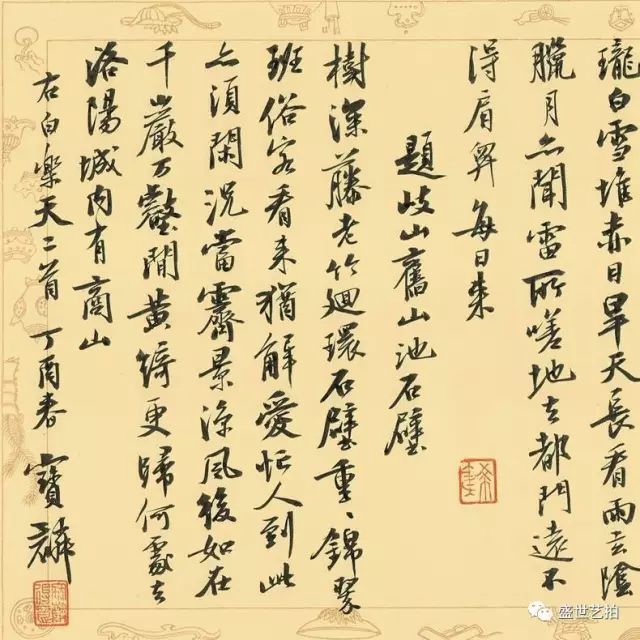 瓏白雪堆赤日旱天長看雨玄陰
臘月亦聞雷所嗟地去都門遠不
得肩舁每日来
題岐山舊山池石壁
樹深藤老竹迴環石壁重〻錦翠
班俗客看来猶解愛忙人到此
亦須閑況當霽景涼風後如在
千巖万壑間黄綺更歸何處去
洛陽城内有商山
右白樂天二首丁酉春寶麟
盛世艺拍